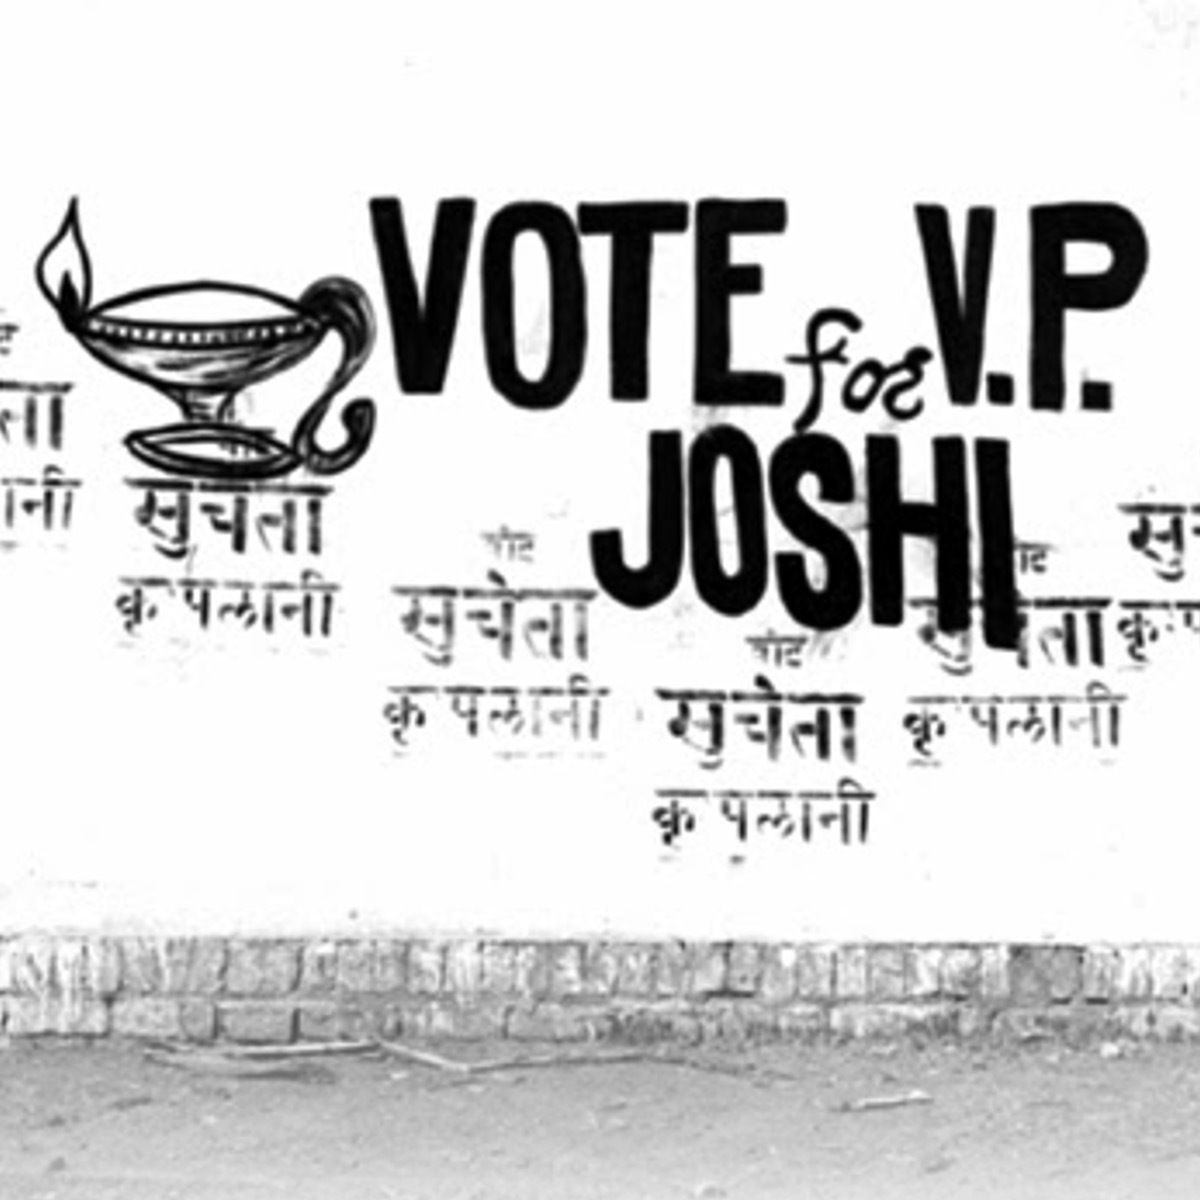 VOTE for V.P.
JOSHI
सुचेता
कृपलानी
वोट
सुचेता
कृपलानी
वोट
सुचेता
कृपलानी
वोट
सुचेता
कृपलानी